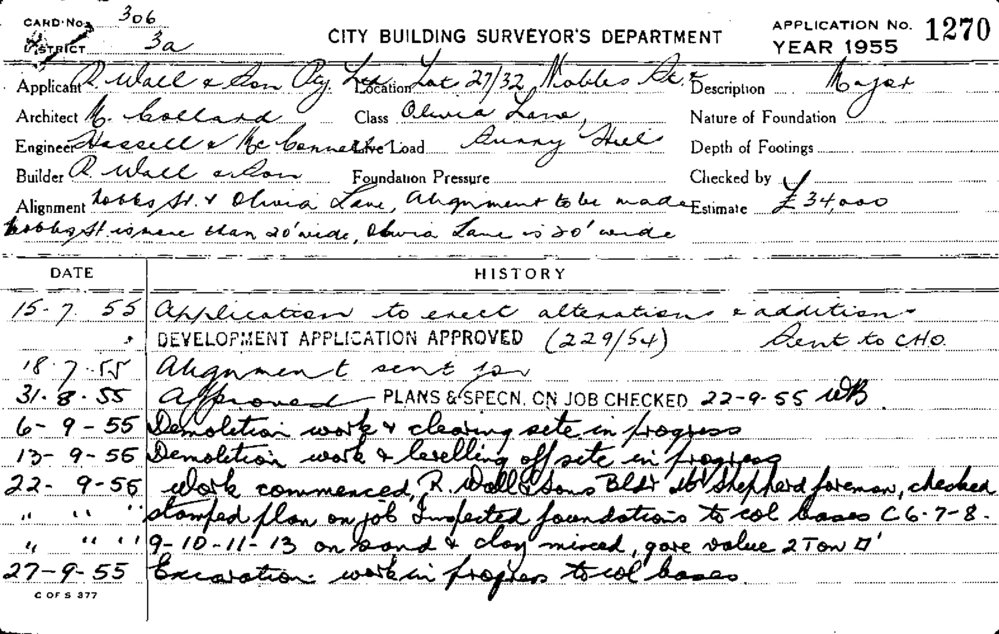 CARD No. 306
DISTRICT 3a
CITY BUILDING SURVEYOR'S DEPARTMENT
APPLICATION No. 1270
YEAR 1955
Applicant R. Wall & Son Pty. Ltd Location Lot 27/32, Hobbs St & Description Major
Architect M. Collard Class Olivia Lane, Nature of Foundation
Engineer Hassell & McConnell Live Load Surry Hill Depth of Footings
Builder R. Wall & Son Foundation Pressure Checked by
Alignment Hobbs St. & Olivia Lane, Alignment to be made Estimate £34,000
Hobbs St is more than 20' wide, Olivia Lane is 20' wide
DATE HISTORY
15-7 55 Application to erect alterations & additions
DEVELOPMENT APPLICATION APPROVED (229/54) Sent to CHO.
18.7.55 Alignment sent for
31-8-55 Approved PLANS & SPECN. ON JOB CHECKED 22-9-55 WB
6-9-55 Demolition work & clearing site in progress
13-9-55 Demolition work & levelling off site in progress
22-9-55 Work commenced, R. Wall & Sons Bldr Shepherd foreman, checked
" " " stamped plan on job Inspected foundations to col bases C6-7-8-
" " " 9-10-11-13 on sand & clay mixed, gave value 2 Ton □'
27-9-55 Excavation: work in progress to col bases.
C OF S 377